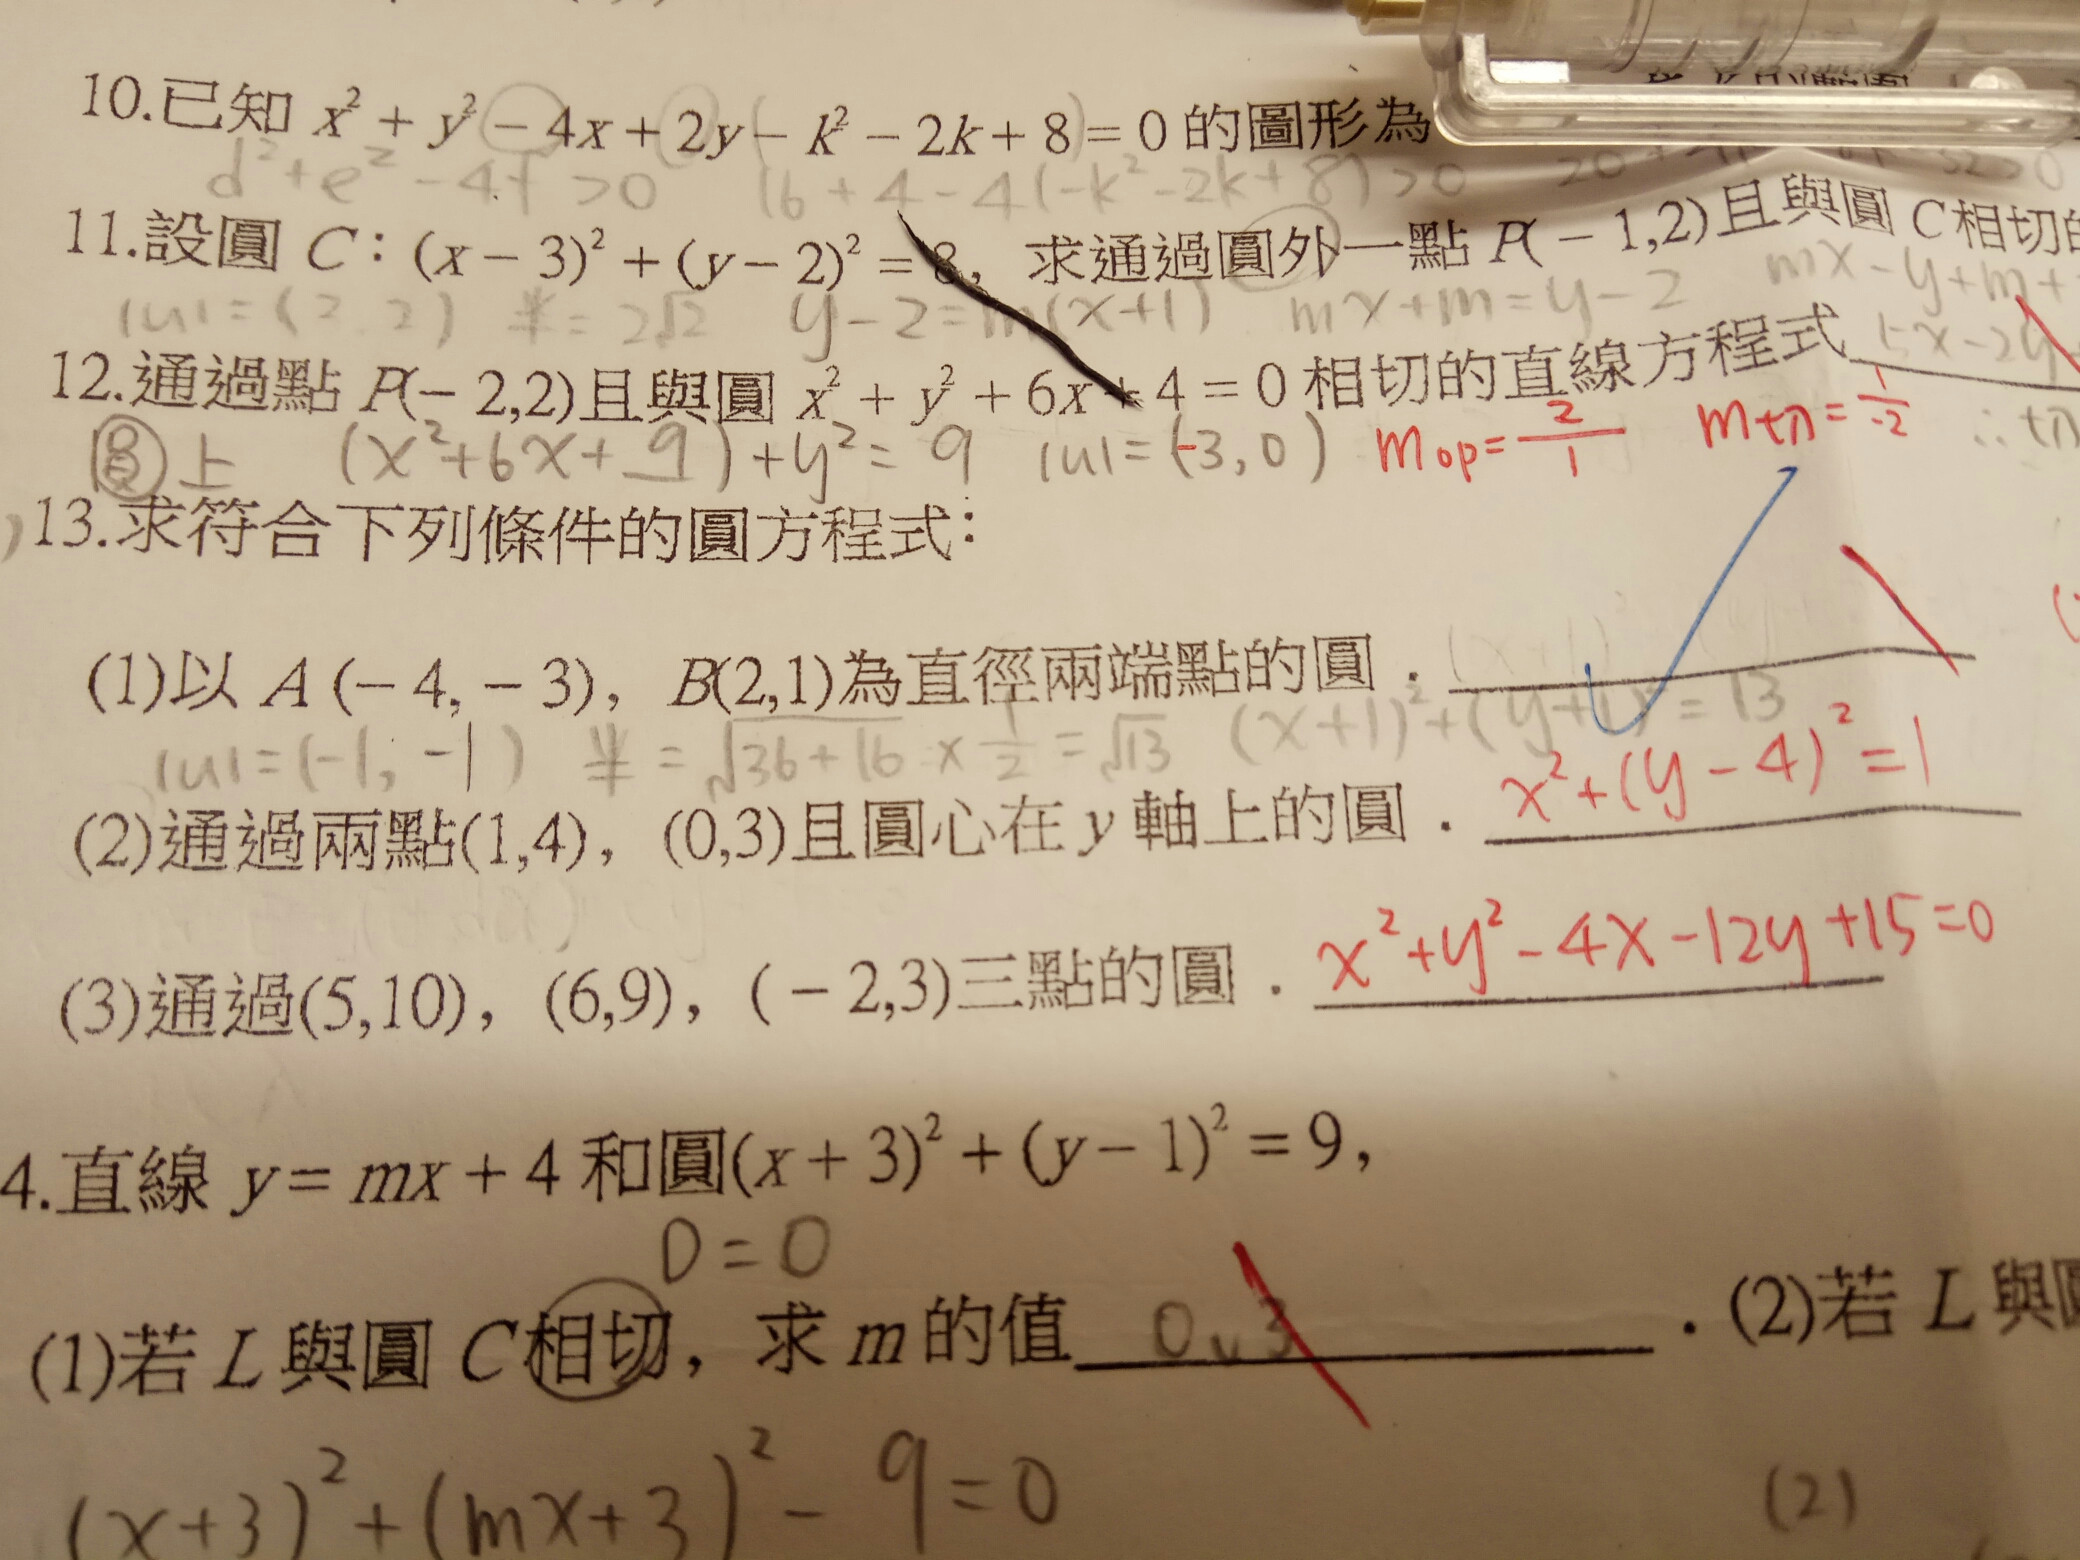 10.已知 x² + y² − 4x + 2y − k² − 2k + 8 = 0 的圖形為
d²+e²-4f >0 16+4-4(-k²-2k+8)>0
11.設圓 C：(x − 3)² + (y − 2)² = 8，求通過圓外一點 P(− 1,2)且與圓 C 相切的
半=2√2 y-2=m(x+1) mx+m=y-2 mx-y+m+
12.通過點 P(− 2,2)且與圓 x² + y² + 6x + 4 = 0 相切的直線方程式 5x-2y
圓上 (x²+6x+9)+y²=9 心=(-3,0) m op=2/1 m切=1/-2 ∴切
13.求符合下列條件的圓方程式：
(1)以 A (− 4, − 3)，B(2,1)為直徑兩端點的圓．
心=(-1,-1) 半=√36+16 × 1/2 =√13 (x+1)²+(y+1)²=13
(2)通過兩點(1,4)，(0,3)且圓心在 y 軸上的圓． x²+(y-4)²=1
(3)通過(5,10)，(6,9)，( − 2,3)三點的圓． x²+y²-4x-12y+15=0
4.直線 y = mx + 4 和圓(x + 3)² + (y − 1)² = 9，
D=0
(1)若 L 與圓 C 相切，求 m 的值 0 v 3 ．(2)若 L 與圓
(x+3)²+(mx+3)²-9=0 (2)